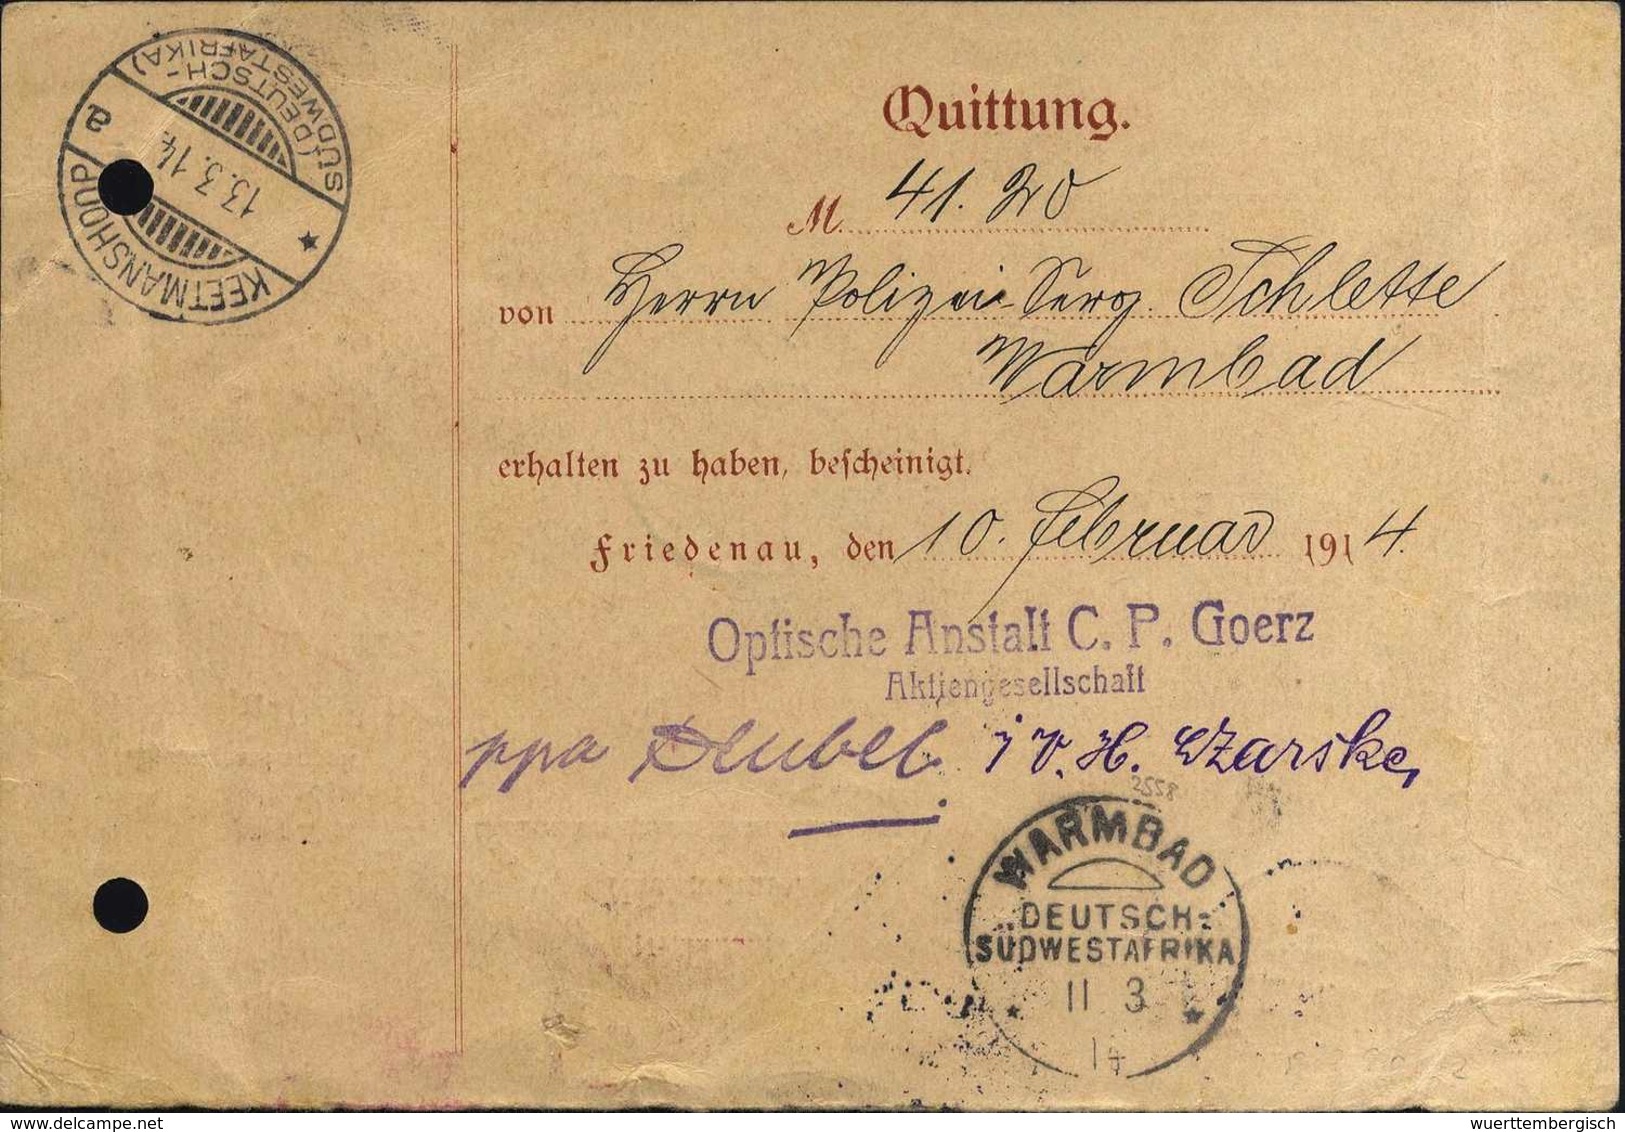 KEETMANSHOOP
(DEUTSCH-
SÜDWESTAFRIKA)
a
13.3.14.
Quittung.
M. 41.20
von Herrn Polizei-Serg. Schlette
Warmbad
erhalten zu haben, bescheinigt.
Friedenau, den 10. Februar 1914.
Optische Anstalt C. P. Goerz
Aktiengesellschaft
ppa i V. H.
2558
WARMBAD
DEUTSCH-
SÜDWESTAFRIKA
11 3
14
delcampe.net
wuerttembergisch